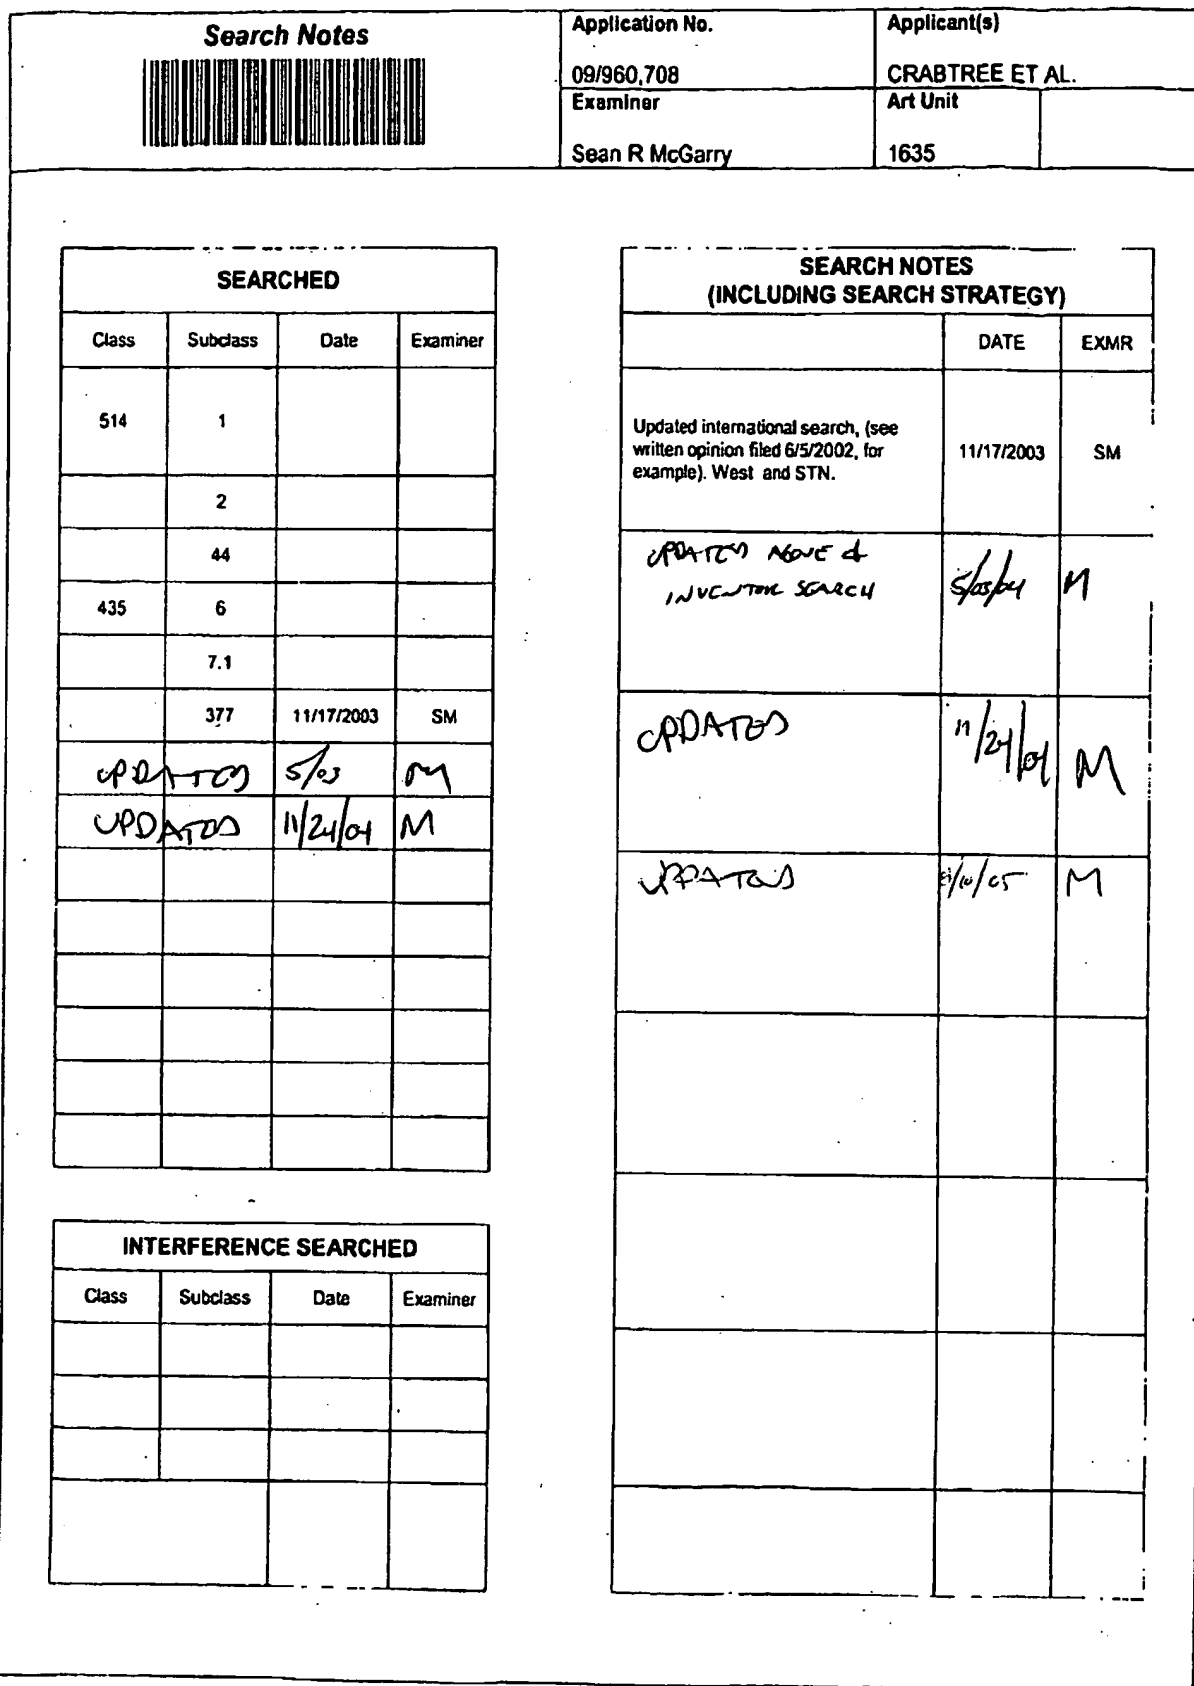 Search Notes
Application No.
09/960,708
Applicant(s)
CRABTREE ET AL.
Examiner
Sean R McGarry
Art Unit
1635
SEARCHED
Class Subclass Date Examiner
514 1
2
44
435 6
7.1
377 11/17/2003 SM
UPDATED 5/03 M
UPDATED 11/24/04 M
INTERFERENCE SEARCHED
Class Subclass Date Examiner
SEARCH NOTES
(INCLUDING SEARCH STRATEGY)
DATE EXMR
Updated international search, (see
written opinion filed 6/5/2002, for
example). West and STN.
11/17/2003 SM
UPDATED ABOVE &
INVENTOR SEARCH
5/03/04 M
UPDATED 11/24/04 M
UPDATED /10/05 M